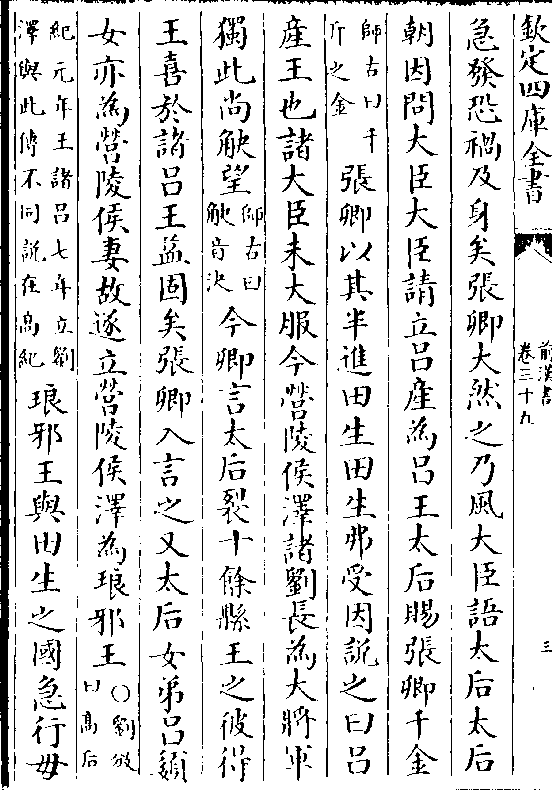 欽定四庫全書
前漢書
卷三十九
三
急發恐禍及身矣張卿大然之乃風大臣語太后太后
朝因問大臣大臣請立吕產為吕王太后賜張卿千金
師古曰千
斤之金
張卿以其半進田生田生弗受因說之曰吕
產王也諸大臣未大服今營陵侯澤諸劉長為大將軍
獨此尚觖望
師古曰
觖音決
今卿言太后裂十餘縣王之彼得
王喜於諸吕王益固矣張卿入言之又太后女弟吕嬃
女亦為營陵侯妻故遂立營陵侯澤為琅邪王
○劉攽
曰高后
紀元年王諸吕七年立劉
澤與此傳不同說在高紀
琅邪王與田生之國急行毋